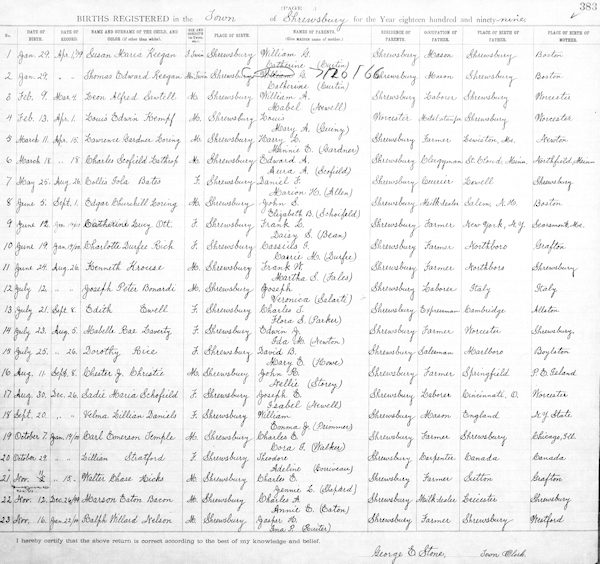 [PAGE]
383
BIRTHS REGISTERED in the Town of Shrewsbury for the Year eighteen hundred and ninety-nine
No. DATE OF BIRTH. DATE OF RECORD. NAME AND SURNAME OF THE CHILD, AND COLOR (if other than white). SEX AND CONDITION (as Twins, etc.) PLACE OF BIRTH. NAMES OF PARENTS. (Give maiden name of mother.) RESIDENCE OF PARENTS. OCCUPATION OF FATHER. PLACE OF BIRTH OF FATHER. PLACE OF BIRTH OF MOTHER.
1 Jan. 29. Apr. 1/99 Susan Maria Keegan F. Twin Shrewsbury William G. Shrewsbury Mason Shrewsbury Boston
Catherine (Curtin)
2 Jan. 29. " " Thomas Edward Keegan M. Twin Shrewsbury William G. Shrewsbury Mason Shrewsbury Boston
Catherine (Curtin)
3 Feb. 9. Mar. 4. Leon Alfred Sawtell M. Shrewsbury William A. Shrewsbury Laborer Shrewsbury Worcester
Mabel (Newell)
4 Feb. 13. Apr. 1. Louis Edwin Kompf M. Shrewsbury Louis Worcester Shrewsbury Worcester
Mary A. (Quiny)
5 March 11. Apr. 15. Lawrence Gardner Loring M. Shrewsbury Harry L. Shrewsbury Farmer Lewiston, Me. Newton
Minnie E. (Gardner)
6 March 18. " 18. Charles Scofield Lathrop M. Shrewsbury Edward A. Shrewsbury Clergyman St. Cloud, Minn. Northfield, Minn
Aura A. (Scofield)
7 May 25. Aug. 26. Collis Iola Bates F. Shrewsbury Daniel F. Shrewsbury Currier Lowell Shrewsbury
Marion H. (Allen)
8 June 5. Sept. 1. Edgar Churchill Loring M. Shrewsbury John S. Shrewsbury Milk dealer Salem, N.H. Boston
Elizabeth B. (Schofield)
9 June 12. Catharine Lucy Ott. F. Shrewsbury Frank L. Shrewsbury Farmer New York, N.Y. Searsmont Me.
Daisy S. (Bean)
10 June 19. Jan. 19/00 Charlotte Durfee Rich F. Shrewsbury Cassius F. Shrewsbury Farmer Northboro Grafton
Carrie M. (Durfee)
11 June 29. Aug. 26. Kenneth Krouse M. Shrewsbury Frank W. Shrewsbury Farmer Northboro Shrewsbury
Martha S. (Fales)
12 July 12. " " Joseph Peter Bonardi M. Shrewsbury Joseph Shrewsbury Laborer Italy Italy
Veronica (Salarti)
13 July 21. Sept. 8. Edith Ewell F. Shrewsbury Charles T. Shrewsbury Expressman Cambridge Allston
Flora S. (Parker)
14 July 23. Aug. 5. Mabelle Rae Laverty F. Shrewsbury Edwin J. Shrewsbury Farmer Worcester Shrewsbury
Ida M. (Newton)
15 July 25. " 26. Dorothy Rice F. Shrewsbury David B. Shrewsbury Salesman Marlboro Boylston
Mary E. (Howe)
16 Aug. 11. Sept. 8. Chester J. Christie M. Shrewsbury John H. Shrewsbury Farmer Springfield P.E. Island
Nellie (Storey)
17 Aug. 30. Dec. 26. Sadie Maria Schofield F. Shrewsbury Joseph E. Shrewsbury Laborer Cincinnati, O. Worcester
Isabel (Newell)
18 Sept. 20. " " Velma Lillian Daniels F. Shrewsbury William Shrewsbury Mason England N.Y. State
Emma J. (Plimmer)
19 October 7. Jan. 19/00 Carl Emerson Temple M. Shrewsbury Charles E. Shrewsbury Farmer Shrewsbury Chicago, Ill.
Cora F. (Walker)
20 October 29. " " Lillian Stratford F. Shrewsbury Theodore Shrewsbury Carpenter Canada Canada
Adeline
21 Nov. " 15. Walter Chase Hicks M. Shrewsbury Charles E. Shrewsbury Farmer Sutton Grafton
Jennie L. (Separd)
22 Nov. 12. Dec. 26/99 Marson Eaton Bacon M. Shrewsbury Charles H. Shrewsbury Milk dealer Leicester Shrewsbury
Annie E. (Eaton)
23 Nov. 16. Jan. 23/00 Ralph Willard Nelson M. Shrewsbury Jasper H. Shrewsbury Farmer Shrewsbury Westford
Ina P.
I hereby certify that the above return is correct according to the best of my knowledge and belief.
George E. Stone, Town Clerk.